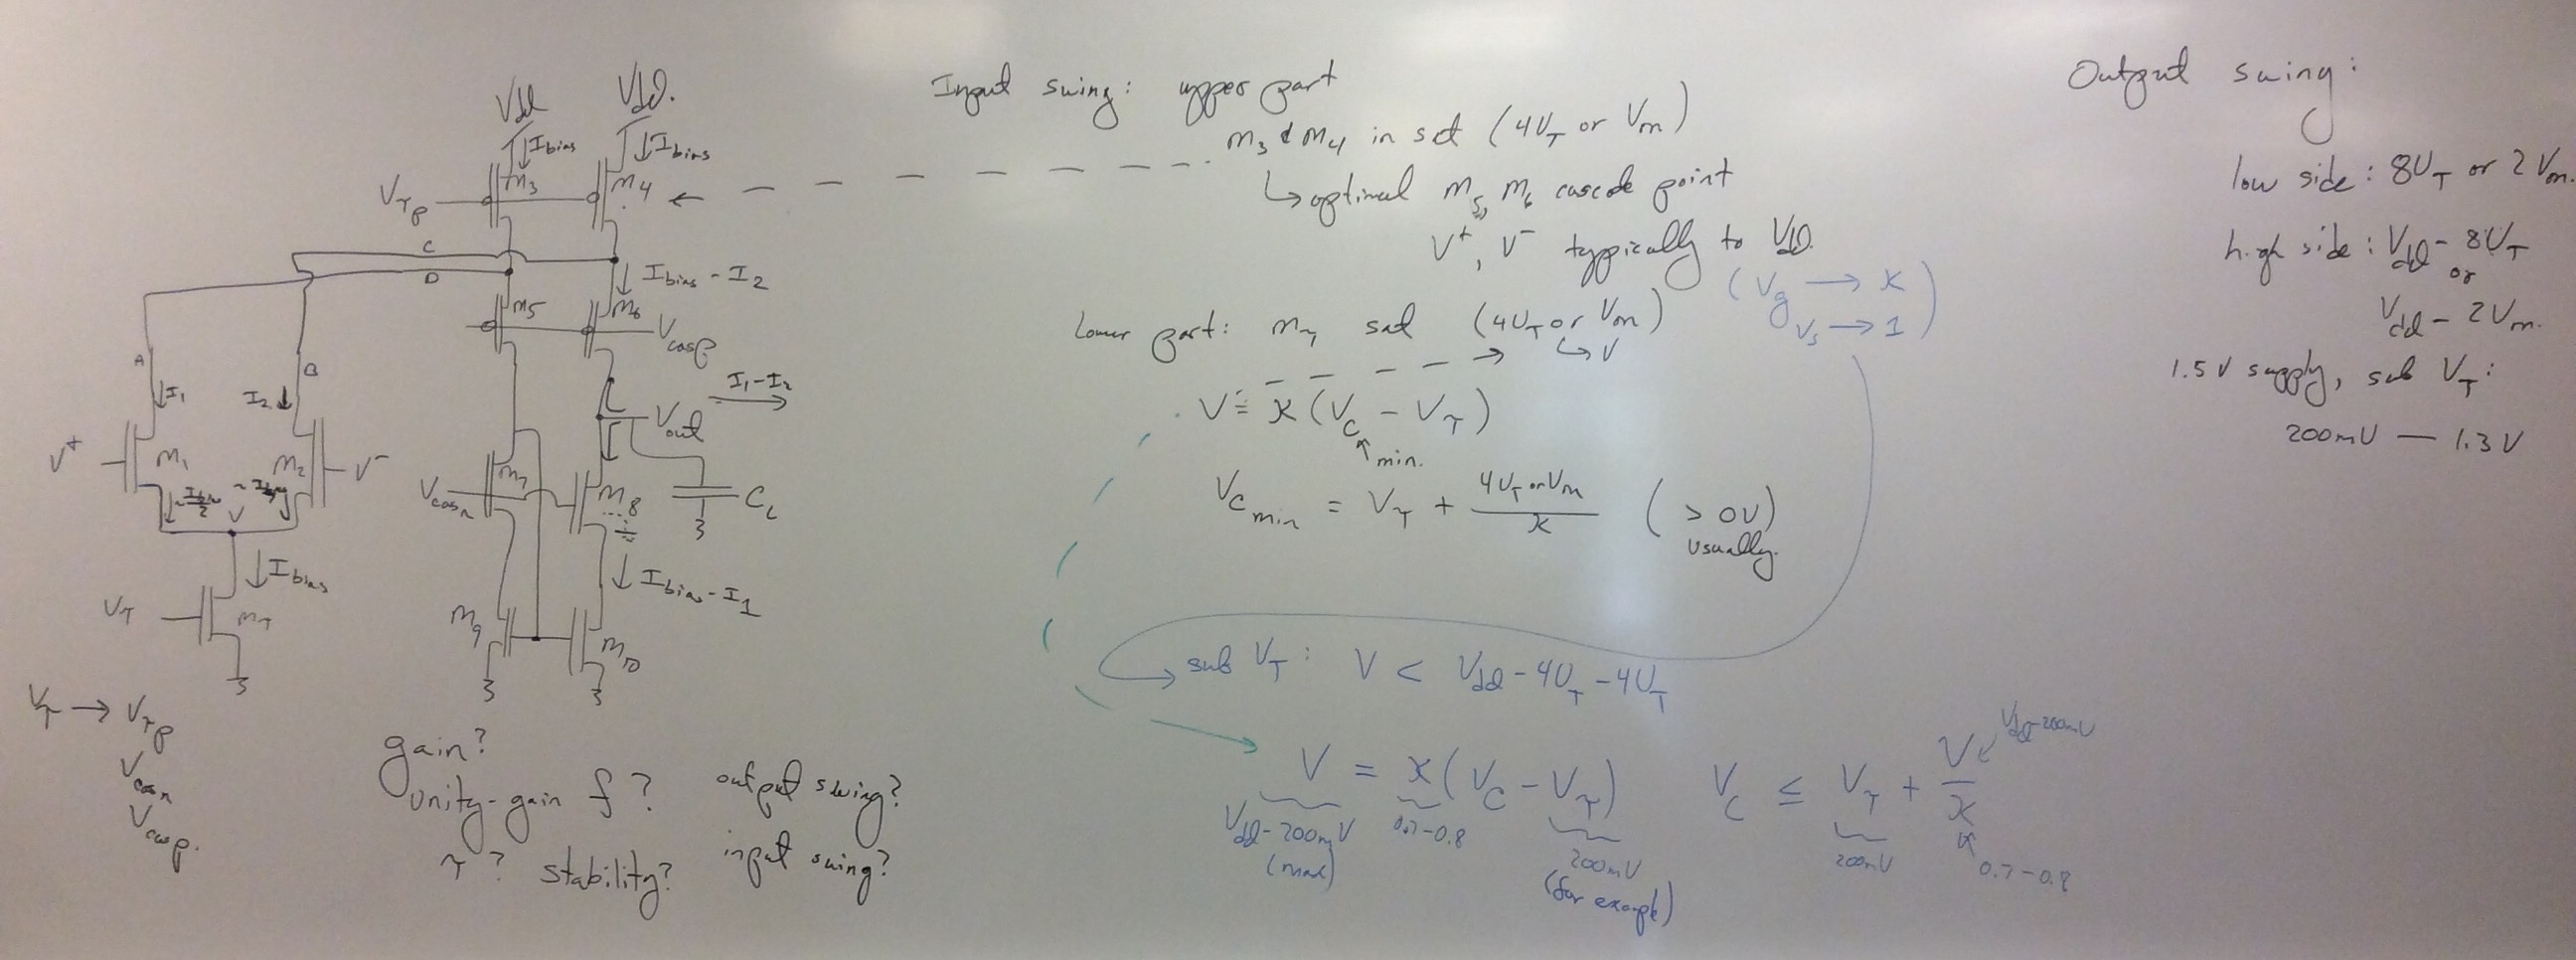 Vdd
Vdd.
↓Ibias
↓Ibias
M3
M4
Vτp
C
D
↓ Ibias - I2
M5
M6
Vcasp
A
B
↓I1
I2↓
I1-I2
Vout
V+
M1
M2
V-
~Ibias/2
V
Vcasn
M7
M8
CL
↓Ibias
↓ Ibias - I1
Vτ
Mτ
M9
M10
Vτ → Vτp
Vcasn
Vcasp.
gain?
unity-gain f?
τ? stability?
output swing?
input swing?
Input swing: upper part
M3 & M4 in sat (4UT or Von)
↳ optimal M5, M6 cascode point
V+, V- typically to Vdd.
(Vg → κ
Vs → 1)
Lower part: Mτ sat (4UT or Von)
↳ V
V = κ(Vc - Vτ)
↑ min.
Vc min = Vτ + 4UT or Von / κ ( > 0V)
usually.
sub VT: V < Vdd - 4UT - 4UT
V = κ(Vc - Vτ) Vc ≤ Vτ + V/κ
Vdd-200mV
Vdd-200mV
(max)
0.7-0.8
200mV
(for example)
200mV
0.7-0.8
Output swing:
low side: 8UT or 2Von.
high side: Vdd - 8UT
or
Vdd - 2Von.
1.5V supply, sub VT:
200mV — 1.3V